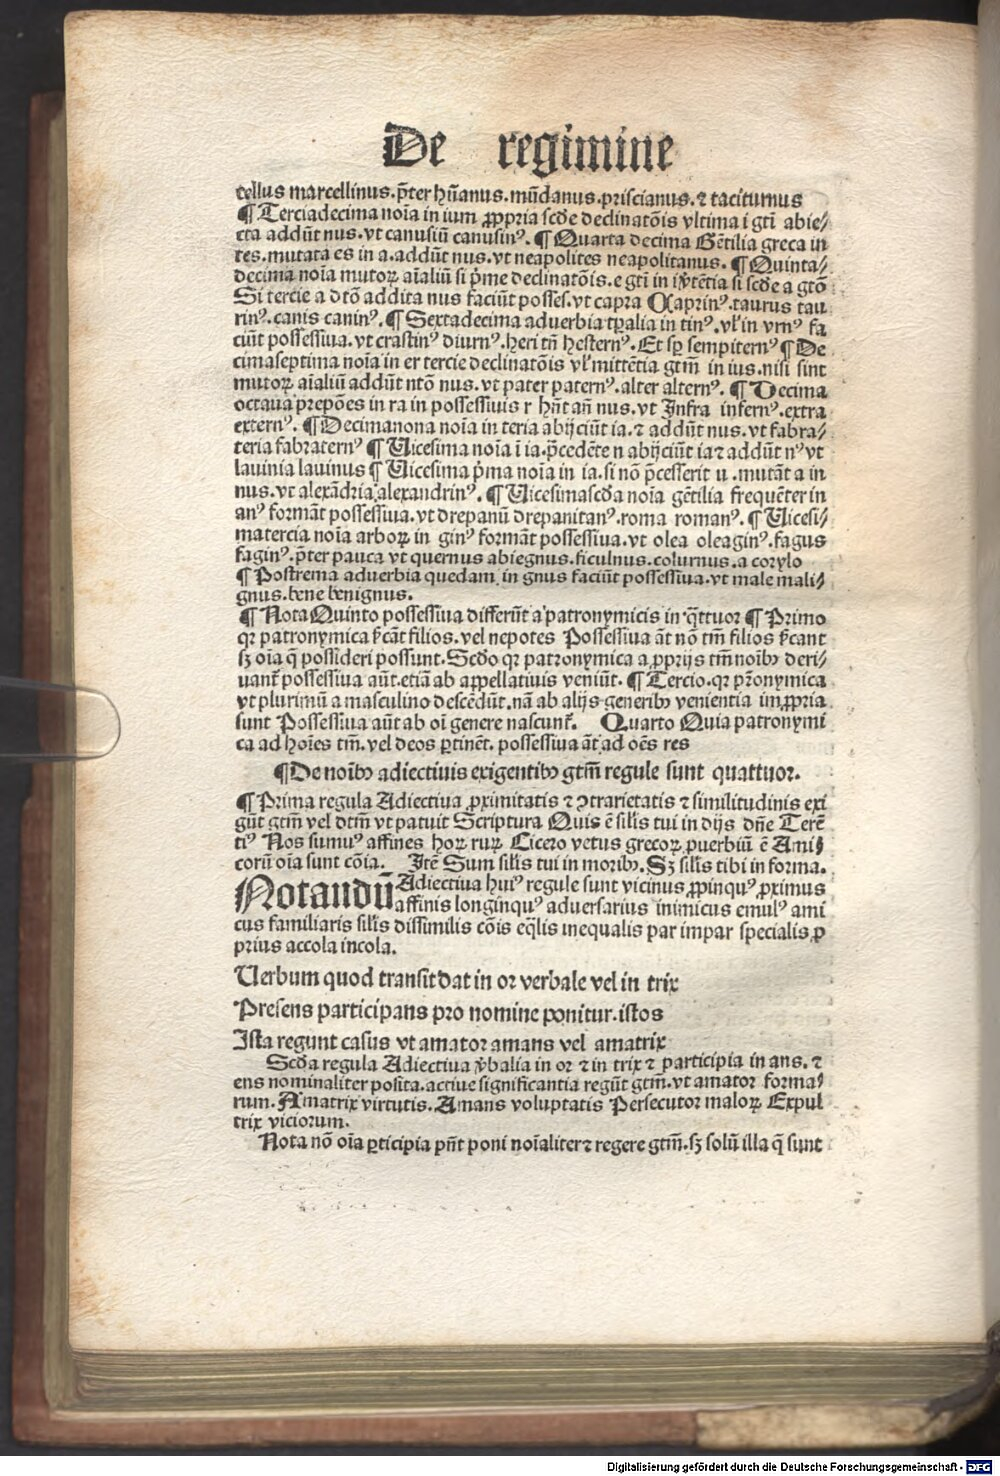 De regimine
cellus marcellinus.p̄ter hūanus.mūdanus.priscianus.⁊ taciturnus
¶ Terciadecima noīa in ium ꝓpria scd̄e declinatōis vltima i gtī abie⸗
cta addūt nus.vt canusiū canusinꝰ. ¶ Quarta decima Gētilia greca in
tes.mutata es in a.addūt nus.vt neapolites neapolitanus. ¶ Quinta⸗
decima noīa mutoꝝ aīaliū si p̄me declinatōis.e gtī in i si scd̄e a gtō
Si tercie a dtō addita nus faciūt posses.vt capra Caprinꝰ.taurus tau
rinꝰ.canis caninꝰ. ¶ Sextadecima aduerbia tꝑalia in tinꝰ.vl̓ in vrnꝰ fa
ciūt possessiua.vt crastinꝰ diurnꝰ.heri tn̄ hesternꝰ. Et sꝑ sempiternꝰ ¶ De
cimaseptima noīa in er tercie declinatōis vl̓ mittētia gtm̄ in ius.nisi sint
mutoꝝ aīaliū addūt ntō nus.vt pater paternꝰ.alter alternꝰ. ¶ Decima
octaua prepōes in ra in possessiuis r hn̄t an̄ nus.vt Infra infernꝰ.extra
externꝰ. ¶ Decimanona noīa in teria abijciūt ia.⁊ addūt nus.vt fabra⸗
teria fabraternꝰ ¶ Uicesima noīa ī ia.p̄cedēte n abijciūt ia⁊ addūt nꝰ vt
lauinia lauinus ¶ Uicesima p̄ma noīa in ia.si nō p̄cesserit u .mutāt a in
nus.vt alexādria alexandrinꝰ. ¶ Uicesimascd̄a noīa gētilia frequēter in
anꝰ formāt possessiua.vt drepanū drepanitanꝰ.roma romanꝰ. ¶ Uicesi⸗
matercia noīa arboꝝ in ginꝰ formāt possessiua.vt olea oleaginꝰ.fagus
faginꝰ.p̄ter pauca vt quernus abiegnus.ficulnus.colurnus.a corylo
¶ Postrema aduerbia quedam in gnus faciūt possessiua.vt male mali⸗
gnus.bene benignus.
¶ Nota Quinto possessiua differūt a patronymicis in q̄ttuor ¶ Primo
qꝛ patronymica sc̄āt filios.vel nepotes Possessiua āt nō tm̄ filios sc̄ant
sꝫ oīa q̄ possideri possunt.Scd̄o qꝛ patronymica a ꝓprijs tm̄ noībꝰ deri⸗
uant᷑ possessiua aūt.etiā ab appellatiuis veniūt. ¶ Tercio.qꝛ pr̄onymica
vt plurimū a masculino descēdūt.nā ab alijs generibꝰ venientia impropria
sunt Possessiua aūt ab oī genere nascunt᷑. Quarto Quia patronymi
ca ad hoīes tm̄.vel deos ꝑtinēt.possessiua āt ad oēs res
¶ De noībꝰ adiectiuis exigentibꝰ gtm̄ regule sunt quattuor.
¶ Prima regula Adiectiua ꝓximitatis ⁊ ꝯtrarietatis ⁊ similitudinis exi
gūt gtm̄ vel dtm̄ vt patuit Scriptura Quis ē silīs tui in dijs dn̄e Terē
tiꝰ Nos sumꝰ affines hoꝝ ruꝝ Cicero vetus grecoꝝ ꝓuerbiū ē Ami⸗
corū oīa sunt cōia. Itē Sum silīs tui in moribꝰ.Sꝫ silīs tibi in forma.
Notandū Adiectiua huiꝰ regule sunt vicinus ꝓpinquꝰ ꝓximus
affinis longinquꝰ aduersarius inimicus emulꝰ ami
cus familiaris silīs dissimilis cōis eq̄lis inequalis par impar specialis ꝓ
prius accola incola.
Uerbum quod transit dat in or verbale vel in trix
Presens participans pro nomine ponitur.istos
Ista regunt casus vt amator amans vel amatrix
Scd̄a regula Adiectiua v̓balia in or ⁊ in trix ⁊ participia in ans.⁊
ens nominaliter posita.actiue significantia regūt gtm̄.vt amator forma⸗
rum. Amatrix virtutis. Amans voluptatis Persecutor maloꝝ Expul
trix viciorum.
Nota nō oīa ꝑticipia pn̄t poni noīaliter⁊ regere gtm̄.sꝫ solū illa q̄ sunt
Digitalisierung gefördert durch die Deutsche Forschungsgemeinschaft - DFG